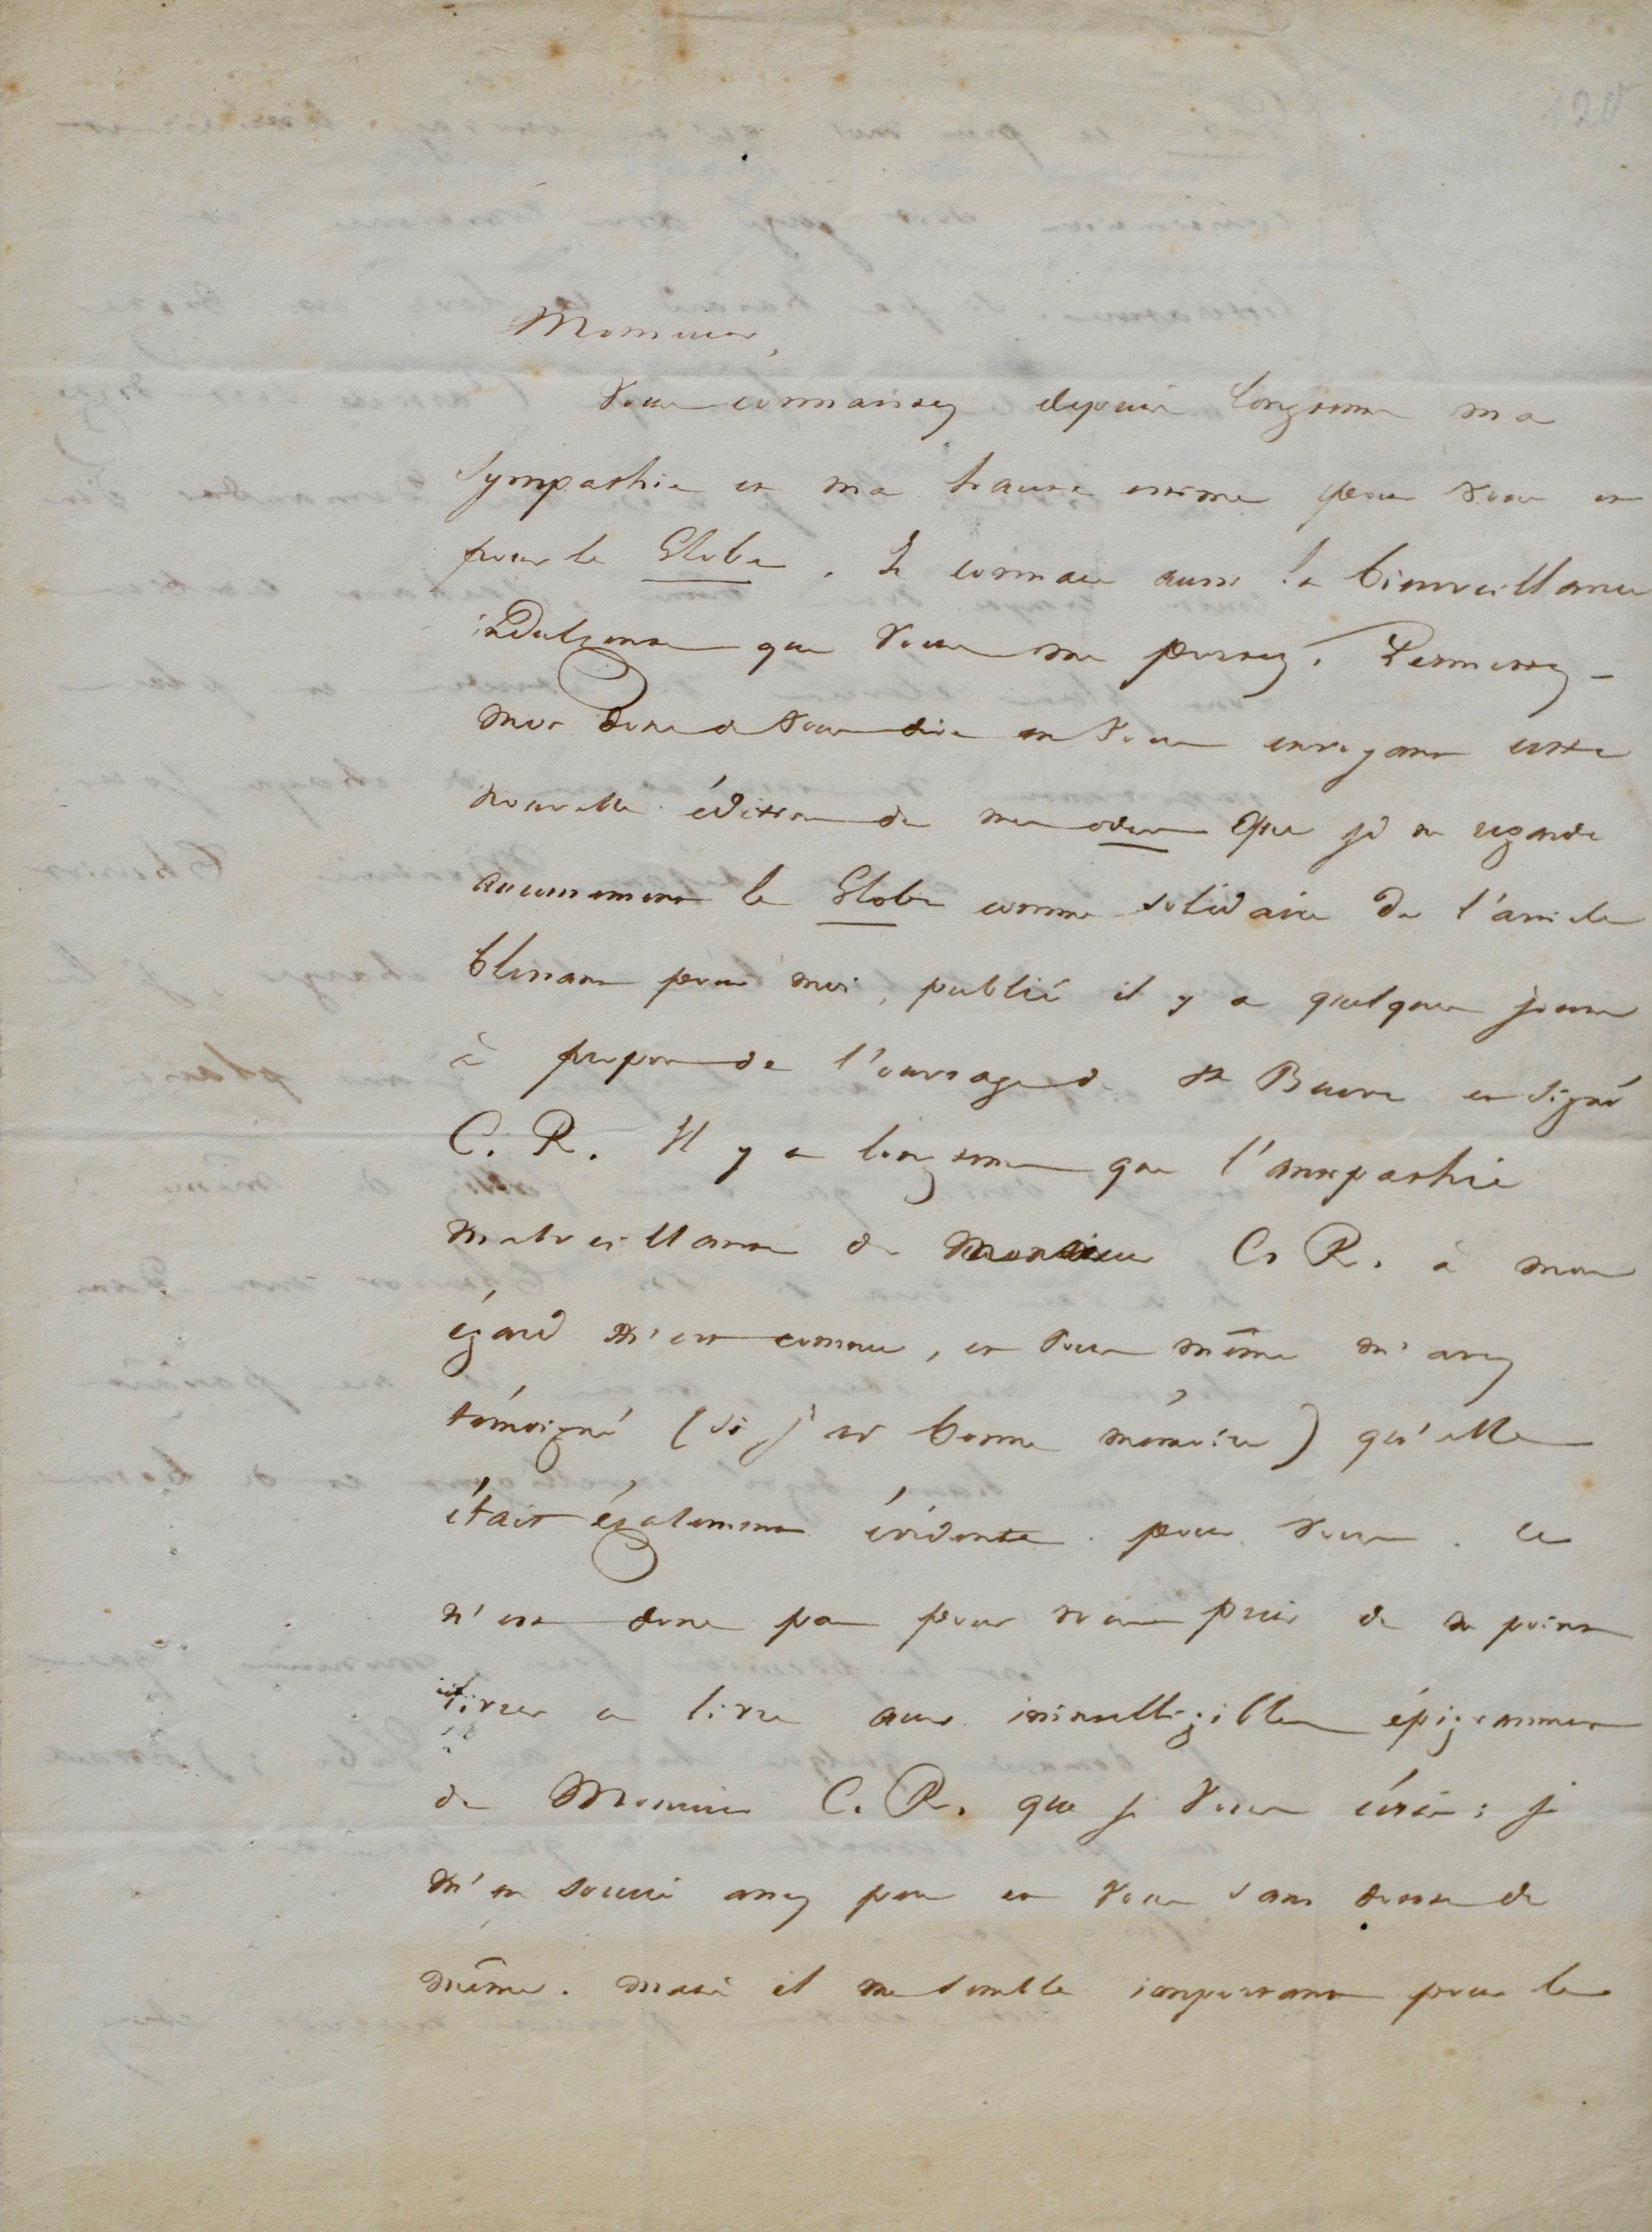 Monsieur,
Vous connaissez depuis longtems ma
sympathie et ma haute estime pour vous et
pour le Globe. Je connais aussi la bienveillance
indulgente que vous me portez. Permettez-
moi donc de vous dire en vous envoyant cette
nouvelle édition de mes odes que je ne regarde
aucunement le Globe comme solidaire de l'article
blessant pour moi, publié il y a quelques jours
à propos de l'ouvrage de Ste Beuve et signé
C. R. Il y a longtems que l'antipathie
malveillante de Monsieur C. R. à mon
égard m'est connue, et vous même m'avez
témoigné (si j'ai bonne mémoire) qu'elle
était également évidente pour vous. Ce
n'est donc pas pour vous prier de ne point
livrer ce livre aux inintelligibles épigrammes
de Monsieur C. R. que je vous écris : je
m'en soucie assez peu et vous sans doute de
même. Mais il me semble important pour le